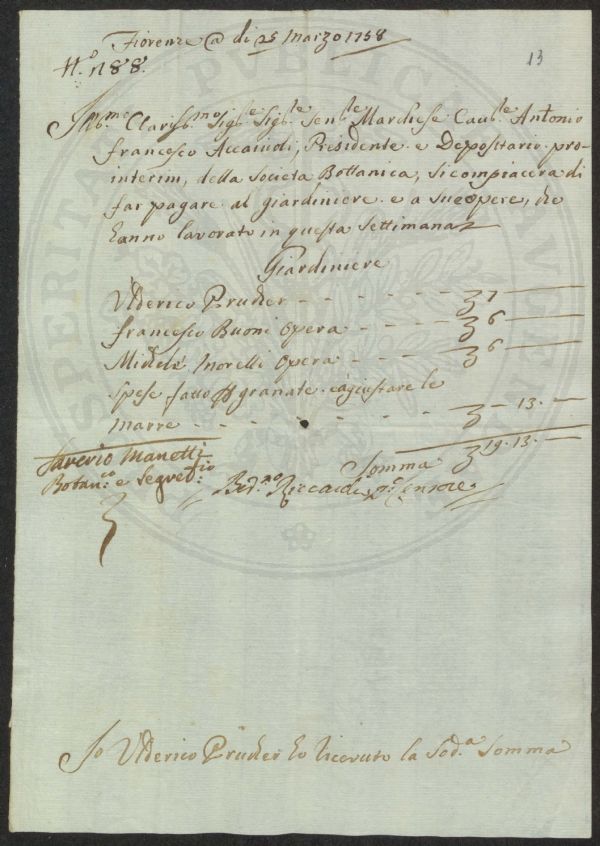 Fiorenze @ di 25 Marzo 1758
13
N.o 188.
Ill.mo Clariss.mo Sig.re Sig.re Sen.re Marchese Cav.re Antonio
Francesco Accaiuoli, Presidente e Depositario pro-
interim, della Società Bottanica, si compiacerà di
far pagare al giardiniere e a sue opere, che
hanno lavorato in questa settimana
Giardiniere
Ulderico Prucker - - - - 7 —
Francesco Buoni opera - - - - 6 —
Michele Morelli opera - - - - 6 —
Spese fatto p granate e agiustare le
marre - - - - - - - — 13. —
Somma 19. 13. —
Saverio Manetti
Botan.co e Segret.io
Bed.no Riccardi Censore
Io Ulderico Prucker ho ricevuto la Sod.a Somma